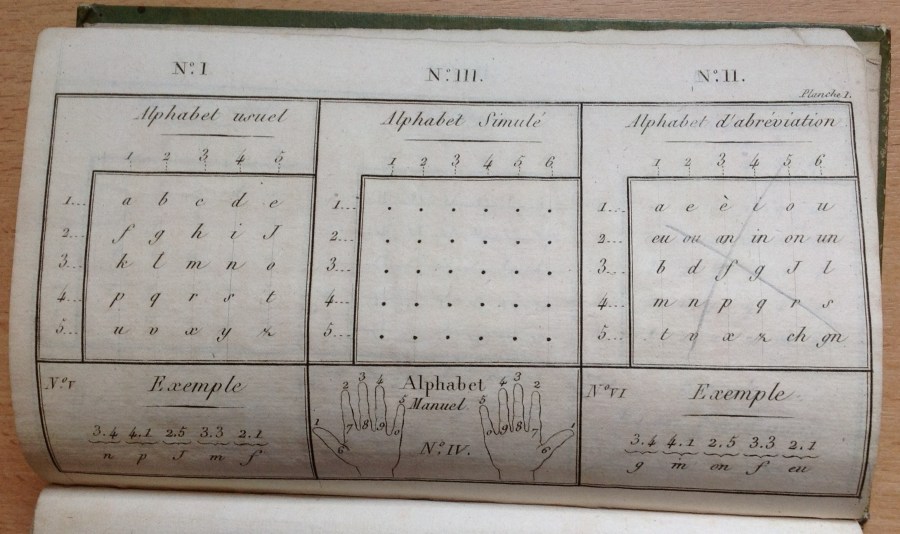 N.º I
N.º III.
N.º II.
Planche I.
Alphabet usuel
1 2 3 4 5
1... a b c d e
2... f g h i J
3... k l m n o
4... p q r s t
5... u v x y z
Alphabet Simulé
1 2 3 4 5 6
1... . . . . . .
2... . . . . . .
3... . . . . . .
4... . . . . . .
5... . . . . . .
Alphabet d'abréviation
1 2 3 4 5 6
1... a e è i o u
2... eu ou an in on un
3... b d f g J l
4... m n p q r s
5... t v x z ch gn
N.º V Exemple
3.4 4.1 2.5 3.3 2.1
n p J m f
Alphabet
Manuel
N.º IV.
1 2 3 4 5
6 7 8 9 0
5 4 3 2 1
0 9 8 7 6
N.º VI Exemple
3.4 4.1 2.5 3.3 2.1
g m on f eu